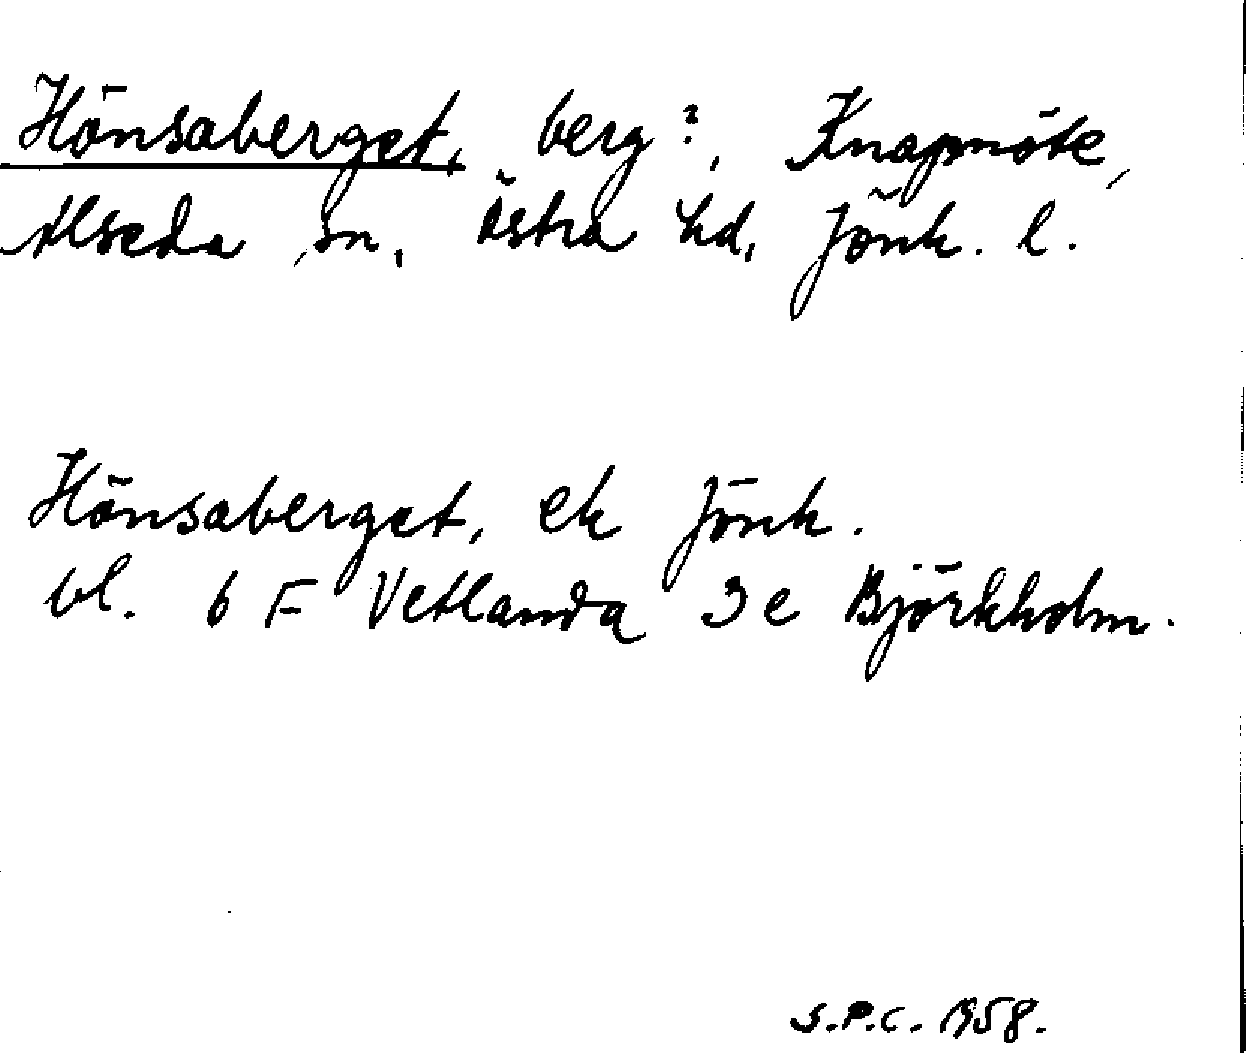 Hönsaberget, berg?, Knapmöte,
Alseda sn, Östra hd, Jönk. l.
Hönsaberget, ek Jönk.
bl. 6 F Vetlanda 3 e Björkholm.
S.P.C. 1958.